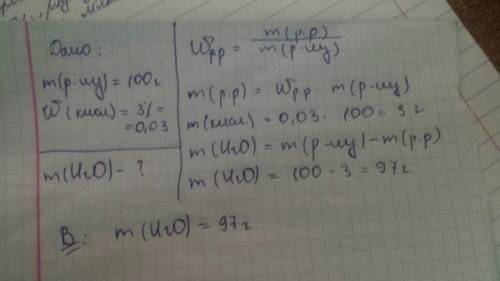 Дано:
m(р-ну) = 100г
W(кисл) = 3% =
= 0,03
m(H2O) - ?
Wрр = m(р.р) / m(р-ну)
m(р.р) = Wр.р. · m(р-ну)
m(кисл) = 0,03 · 100 = 3г
m(H2O) = m(р-ну) - m(р.р)
m(H2O) = 100 - 3 = 97г
В: m(H2O) = 97г